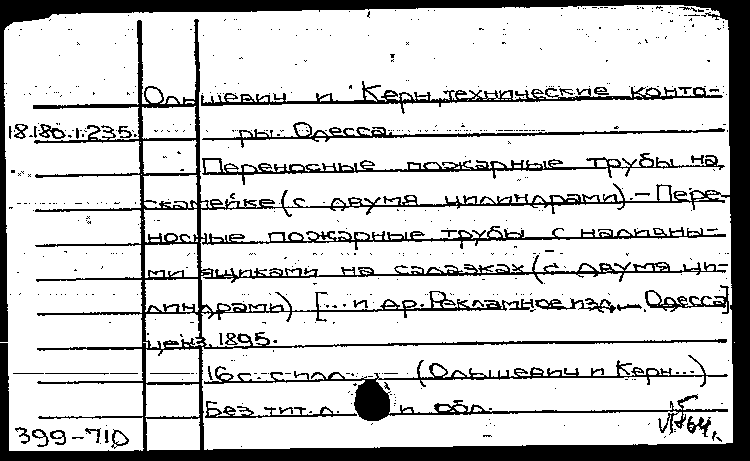 Ольшевич и Керн, технические конто-
18.180.1.235. ры. Одесса.
Переносные пожарные трубы на
скамейке (с двумя цилиндрами). - Пере-
носные пожарные трубы с наливны-
ми ящиками на салазках (с двумя ци-
линдрами) [... и др. Рекламное изд. - Одесса],
ценз. 1895.
16 с. с илл. (Ольшевич и Керн...)
Без тит. л. и обл.
399-710